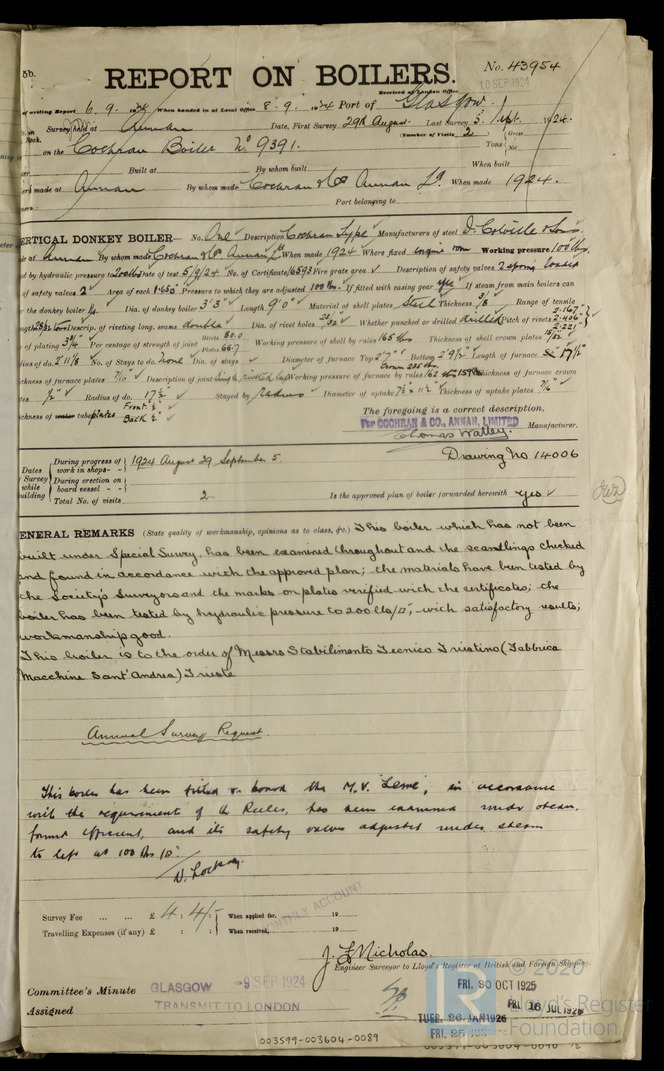 5b.
REPORT ON BOILERS.
No. 43954
Received at London Office
10 SEP 1924
of writing Report 6. 9. 1924 When handed in at Local Office 8. 9. 1924 Port of Glasgow.
Survey held at Annan Date, First Survey 29th August. Last Survey 5. Sept. 1924.
Book.
(Number of Visits 2)
on the Cochran Boiler No. 9391.
Gross
Tons
Built at By whom built When built
made at Annan By whom made Cochran & Co Annan Ld. When made 1924.
Port belonging to
ERTICAL DONKEY BOILER No. One Description Cochran Type Manufacturers of steel D. Colville & Sons.
de at Annan By whom made Cochran & Co Annan Ld When made 1924 Where fixed engine room Working pressure 100 lbs.
d by hydraulic pressure to 200 lbs Date of test 5/9/24 No. of Certificate 16593 Fire grate area Description of safety valves 2 spring loaded
of safety valves 2 Area of each Pressure to which they are adjusted 100 lbs. If fitted with easing gear yes If steam from main boilers can
the donkey boiler Dia. of donkey boiler 3'3" Length 9'0" Material of shell plates Steel Thickness 3/8 Range of tensile
Descrip. of riveting long. seams double Dia. of rivet holes Whether punched or drilled drilled Pitch of rivets
of plating 3 3/4 Per centage of strength of joint Rivets Plates 66.7 Working pressure of shell by rules 165 lbs Thickness of shell crown plates
dius of do. 2'11 1/8 No. of Stays to do. none Dia. of stays Diameter of furnace Top Bottom 2'9 1/2" Length of furnace
ickness of furnace plates 7/16" Description of joint Working pressure of furnace by rules Thickness of furnace crown
tes 1/2" Radius of do. 17 1/2 Stayed by Diameter of uptake Thickness of uptake plates 7/16"
ickness of water tube plates Front Back
The foregoing is a correct description,
For COCHRAN & CO., ANNAN, LIMITED
Manufacturer.
Drawing No 14006
Dates
Survey
while
building
During progress of work in shops - - 1924 August 29 September 5
During erection on board vessel - -
Total No. of visits 2
Is the approved plan of boiler forwarded herewith yes
ENERAL REMARKS (State quality of workmanship, opinions as to class, &c.) This boiler which has not been
built under Special Survey, has been examined throughout and the scantlings checked
and found in accordance with the approved plan; the materials have been tested by
the Society's Surveyors and the marks on plates verified with the certificates; the
boiler has been tested by hydraulic pressure to 200 lbs/□", with satisfactory results;
workmanship good.
This boiler is to the order of Messrs Stabilimento Tecnico Triestino (Fabbrica
Macchine Sant'Andrea) Trieste
Annual Survey Request.
This boiler has been fitted on board the M.V. "Leme", in accordance
with the requirements of the Rules, has been examined under steam,
found efficient, and its safety valves adjusted under steam
to lift at 100 lbs/□".
MONTHLY ACCOUNT
Survey Fee ... ... £ 4 : 4 : When applied for, 19
Travelling Expenses (if any) £ : : When received, 19
J. F. Nicholas.
Engineer Surveyor to Lloyd's Register of British and Foreign Shipping.
Committee's Minute
GLASGOW -9 SEP 1924
Assigned
TRANSMIT TO LONDON
FRI. 30 OCT 1925
FRI. 16 JUL 1926
TUES. 26 JAN 1926
© 2020
Lloyd's Register
Foundation
003599-003604-0089